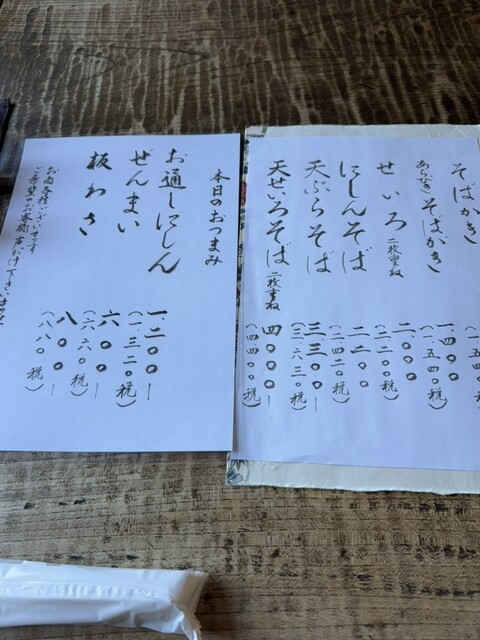 そばかき
(一、五四
あらびきそばがき
一四〇〇
(一、五四〇税)
せいろ 二枚重ね
二〇〇〇
(二、二〇〇税)
にしんそば
二二〇〇
(二、四二〇税)
天ぷらそば
三三〇〇ー
(三、六三〇税)
天せいろそば 二枚重ね
四〇〇〇ー
(四四〇〇税)
本日のおつまみ
お通しにしん
一二〇〇ー
(一、三二〇税)
ぜんまい
六〇〇ー
(六六〇税)
板わさ
八〇〇ー
(八八〇税)
お酒各種ございます
ご希望の方お声がけ下さいませ